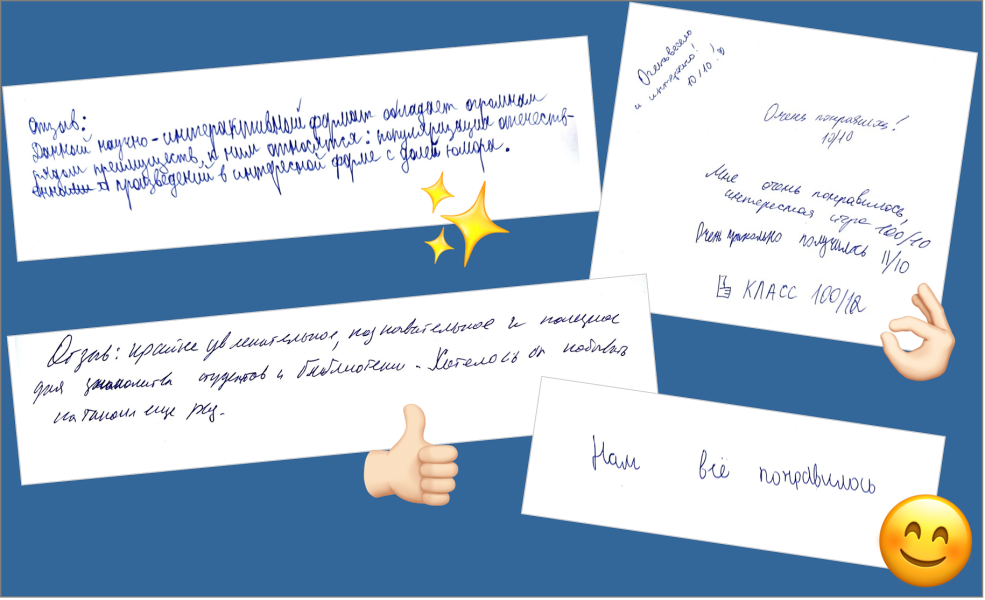 Отзыв:
Данный научно-интерактивный формат обладает огромным
рядом преимуществ, к ним относятся: популяризация отечеств-
произведений в интересной форме с долей юмора.
Очень весело
и интересно!
10/10!
Очень понравилось!
10/10
Мне очень понравилось,
интересная игра 100/10
Очень прикольно получилось 11/10
КЛАСС 100/10
Отзыв: крайне увлекательное, познавательное и полезное
для знакомства студентов и библиотеки. Хотелось бы побывать
на таком еще раз.
Нам всё понравилось